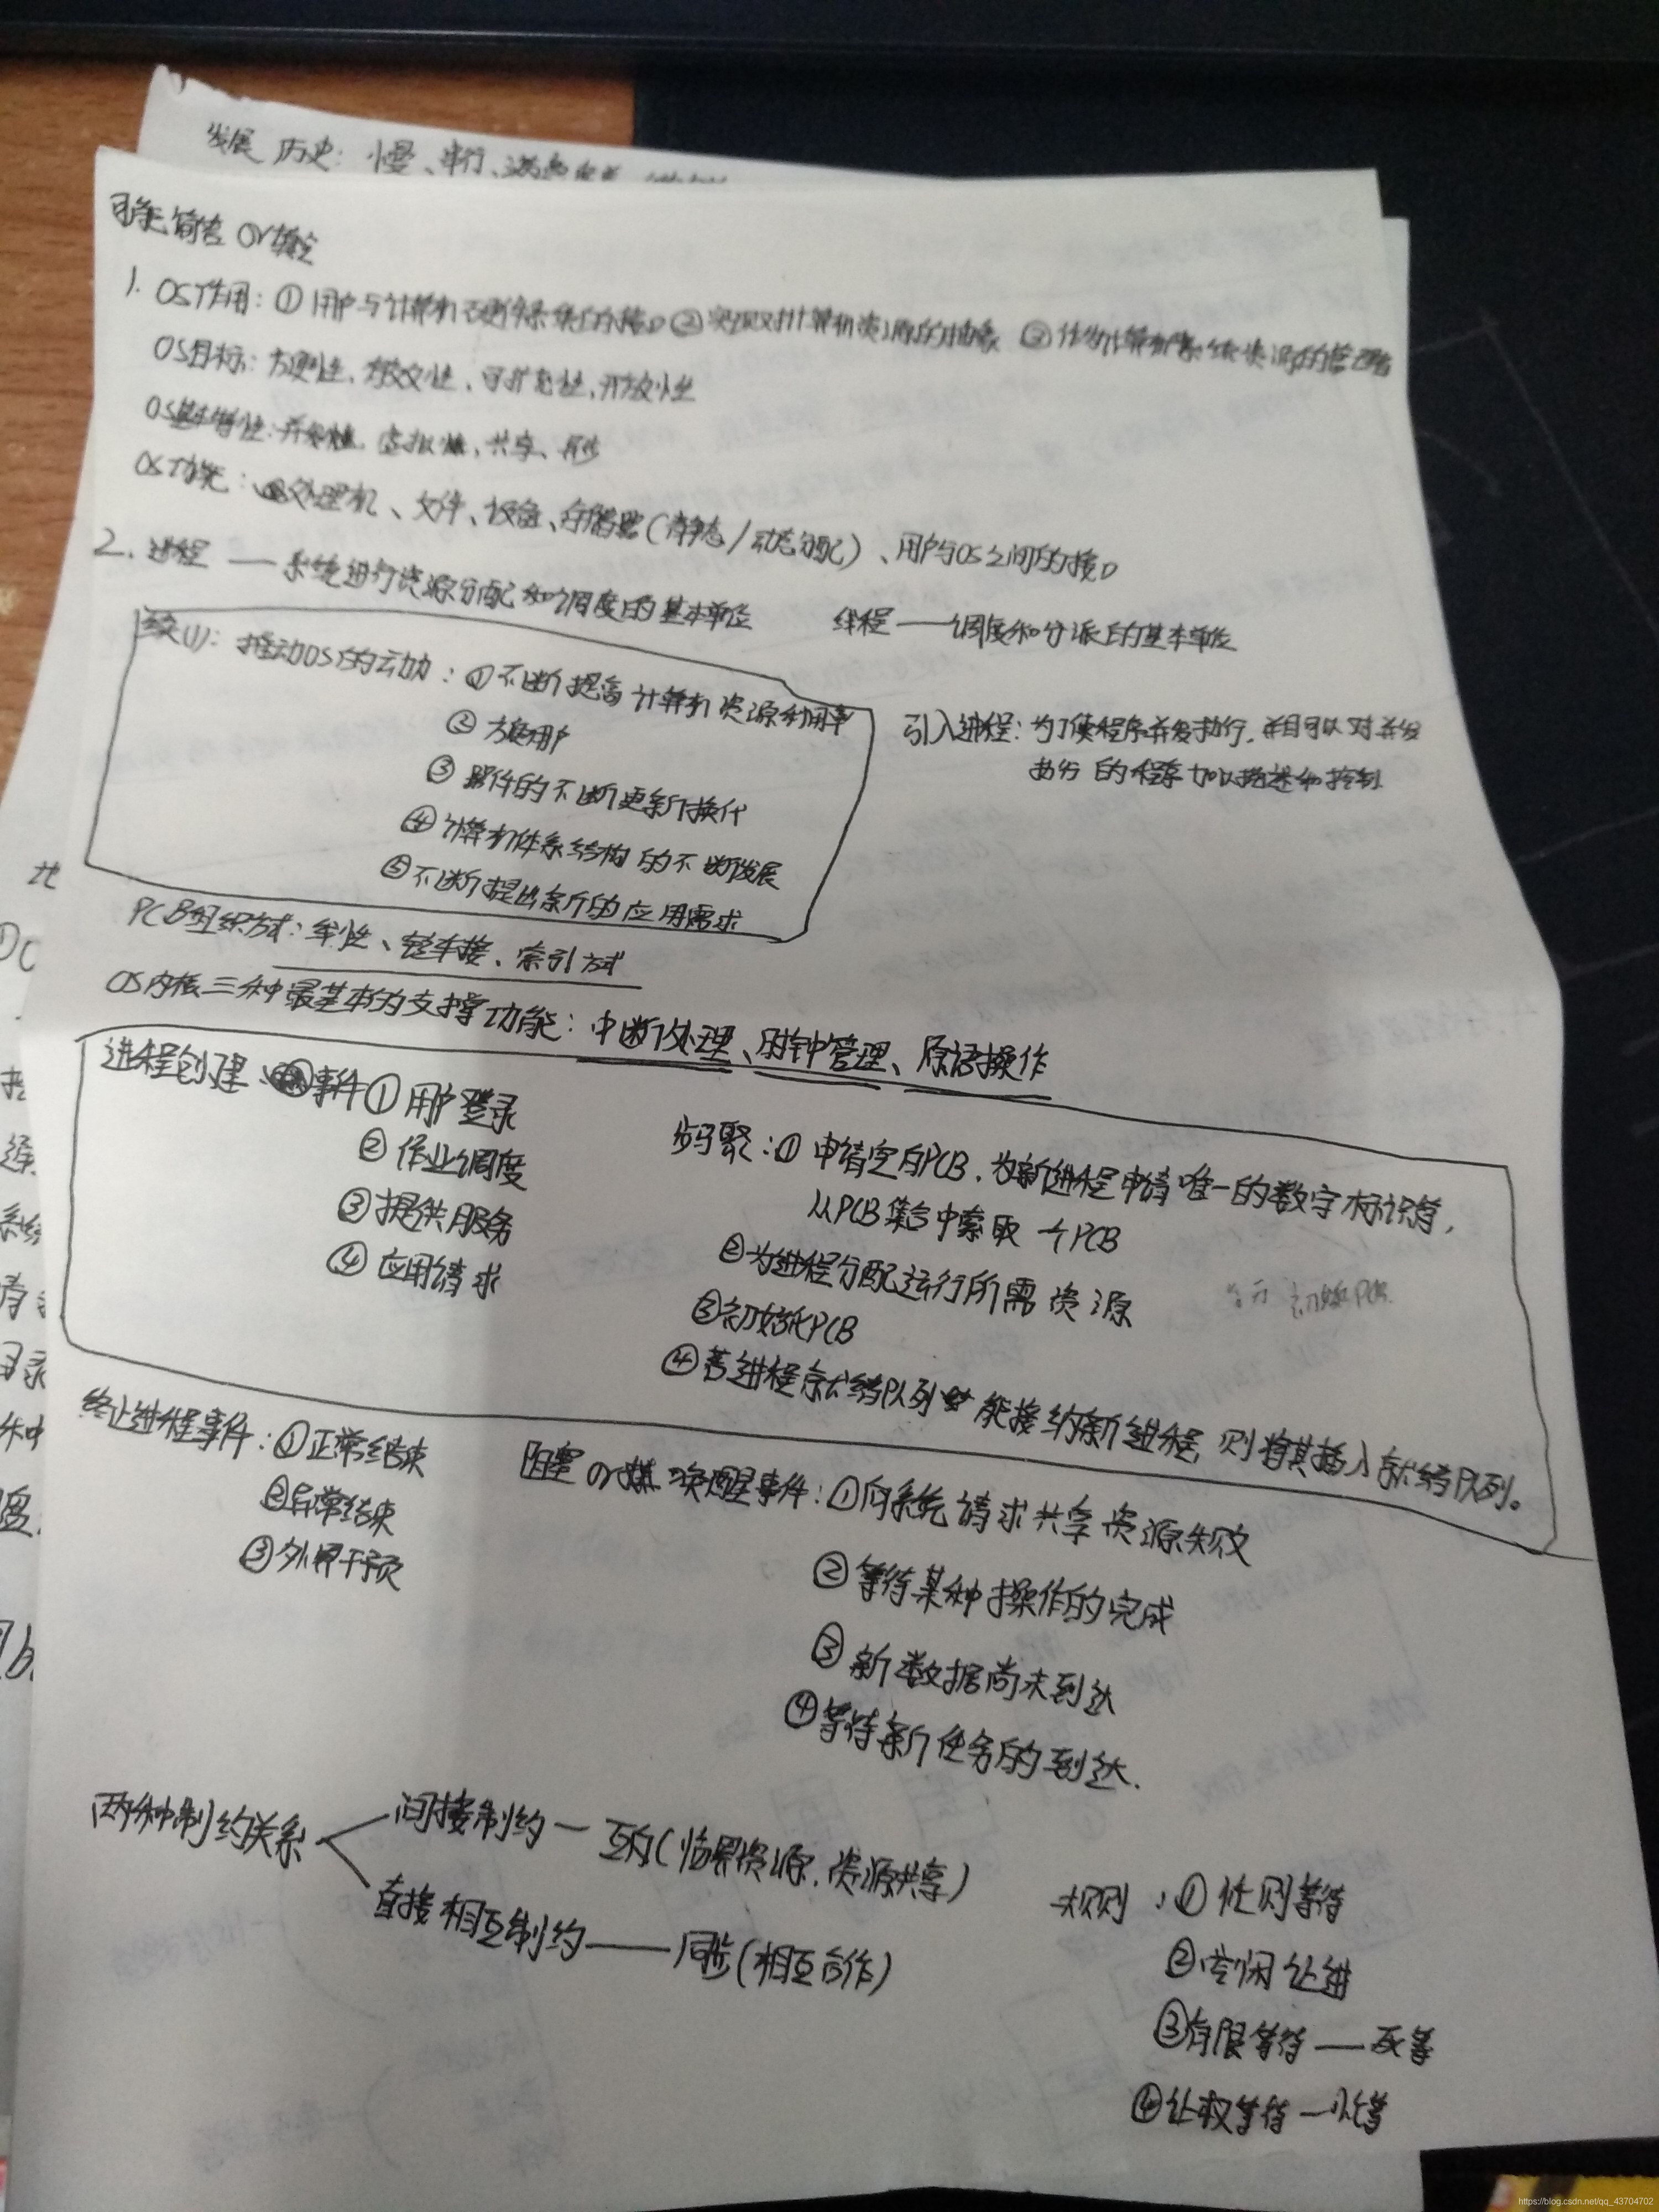 发展历史：慢、串行、
可能简答 or 填空
1. OS作用：① 用户与计算机硬件系统的接口 ② 实现对计算机资源的抽象 ③ 作为计算机系统资源的管理者
OS目标：方便性、有效性、可扩充性、开放性
OS基本特性：并发性、虚拟性、共享、异步
OS功能：处理机、文件、设备、存储器（静态/动态分配）、用户与OS之间的接口
2. 进程 —— 系统进行资源分配和调度的基本单位
线程 —— 调度和分派的基本单位
续(1)：推动OS的动力：①不断提高计算机资源利用率
② 方便用户
③ 器件的不断更新换代
④ 计算机体系结构的不断发展
⑤不断提出新的应用需求
引入进程：为了使程序并发执行，并且可以对并发
执行的程序加以描述和控制
PCB组织方式：线性、链接、索引方式
OS内核三种最基本的支撑功能：中断处理、时钟管理、原语操作
进程创建、事件① 用户登录
② 作业调度
③ 提供服务
④ 应用请求
步骤：① 申请空白PCB，为新进程申请唯一的数字标识符，
从PCB集合中索取一个PCB
②为进程分配运行所需资源
③初始化PCB
④若进程就绪队列能接纳新进程，则将其插入就绪队列。
初始PCB
终止进程事件：①正常结束
②异常结束
③外界干预
阻塞 or 唤醒事件：①向系统请求共享资源失败
②等待某种操作的完成
③ 新数据尚未到达
④等待新任务的到达.
两种制约关系
间接制约 — 互斥（临界资源、资源共享）
直接相互制约 —— 同步（相互合作）
规则：① 忙则等待
②空闲让进
③有限等待 —— 死等
④让权等待 — 忙等
https://blog.csdn.net/qq_43704702